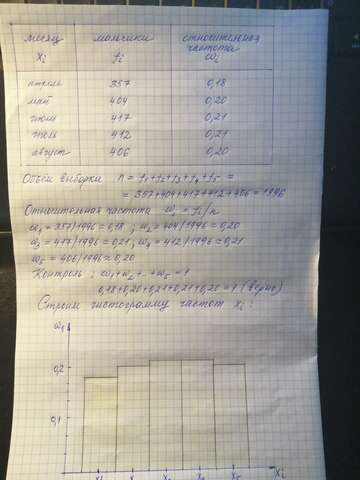 месяц мальчики относительная частота
xi fi ωi
апрель 357 0,18
май 404 0,20
июнь 417 0,21
июль 412 0,21
август 406 0,20
Объём выборки n = f1+f2+f3+f4+f5 =
= 357+404+417+412+406 = 1996
Относительная частота ωi = fi/n
ω1 = 357/1996 ≈ 0,18 ; ω2 = 404/1996 ≈ 0,20
ω3 = 417/1996 ≈ 0,21 ; ω4 = 412/1996 ≈ 0,21
ω5 = 406/1996 ≈ 0,20
Контроль ; ω1+ω2+...+ω5 = 1
0,18+0,20+0,21+0,21+0,20 = 1 (верно)
Строим гистограмму частот xi :
ω1
0,2
0,1
x5 xi